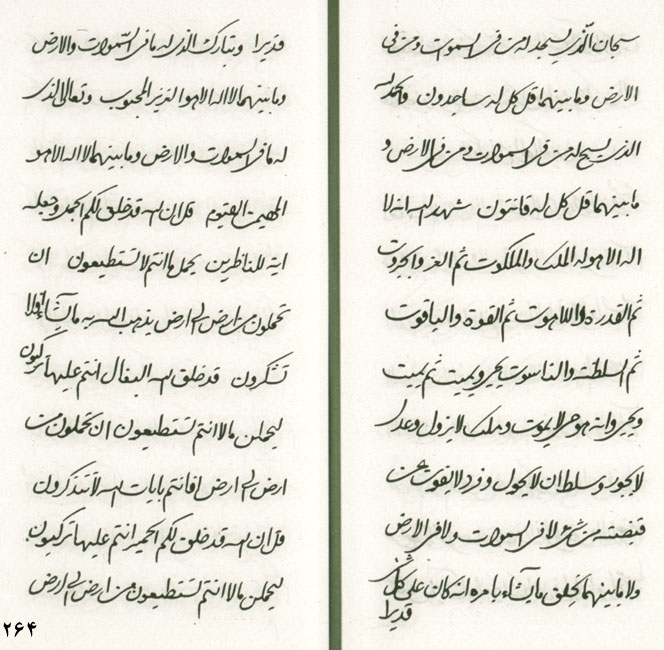 سبحان الذی یسجد له من فی السموات و من فی
الارض و ما بینهما قل کل له ساجدون والحمد لله
الذی یسبح له من فی السموات و من فی الارض و
ما بینهما قل کل له قانتون شهد الله انه لا
اله الا هو له الملک والملکوت ثم العز والجبروت
ثم القدرة واللاهوت ثم القوة والیاقوت
ثم السلطنه والناسوت یحیی و یمیت ثم یمیت
و یحیی و انه هو حی لا یموت و ملک لا یزول و عدل
لا یجور و سلطان لا یحول و فرد لا یفوت عن
قبضته من شیئ لا فی السموات و لا فی الارض
و لا ما بینهما یخلق ما یشاء بامره انه کان علی کل شیئ
قدیرا
قدیرا و تبارک الذی له ما فی السموات والارض
و ما بینهما لا اله الا هو العزیز المحبوب و تعالی الذی
له ما فی السموات والارض و ما بینهما لا اله الا هو
المهیمن القیوم قل ان الله قد خلق لکم الجمل و جعله
ایة للناظرین یحمل ما انتم لا تستطیعون ان
تحملون من ارض الی ارض یذهب الله به ما یشاء افلا
تشکرون قد خلق الله البغال انتم علیها ترکبون
لیحملن ما لا انتم تستطیعون ان تحملون من
ارض الی ارض افانتم بایات الله لا تتذکرون
قل ان الله قد خلق لکم الحمیر انتم علیها ترکبون
لیحملن ما لا انتم تستطیعون من ارض الی ارض
۲۶۴